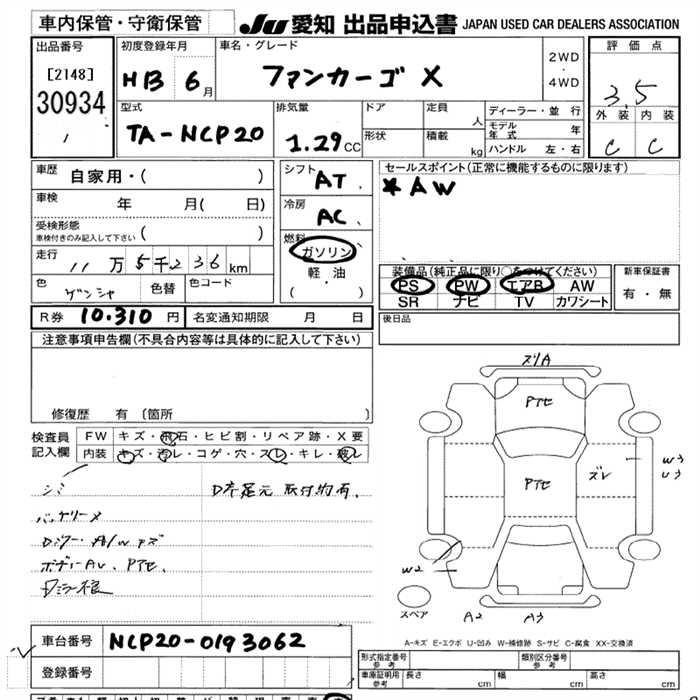 車内保管・守衛保管
JU 愛知 出品申込書 JAPAN USED CAR DEALERS ASSOCIATION
出品番号
[2148]
30934
初度登録年月
H13 6月
車名・グレード
ファンカーゴ X
2WD
・
4WD
評価点
3.5
外装 内装
C C
型式
TA-NCP20
排気量
1.29CC
ドア
形状
定員 人
積載 kg
ディーラー・並行
モデル年式 年
ハンドル 左・右
車歴 自家用・( )
車検 年 月( 日)
受検形態
車検付きのみ記入して下さい ( )
走行 11万5千236km
色 ゲンシャ 色替 色コード
シフト AT
冷房 AC
燃料 ガソリン
・
軽・油
・
( )
セールスポイント(正常に機能するものに限ります)
*AW
装備品(純正品に限り○をつけてください)
PS PW エアB AW
SR ナビ TV カワシート
新車保証書
有・無
R券 10.310円 名変通知期限 月 日
後日品
注意事項申告欄(不具合内容等は具体的に記入して下さい)
修復歴 有 〔箇所 〕
検査員記入欄
FW キズ・飛石・ヒビ割・リペア跡・X要
内装 キズ・汚レ・コゲ・穴・スレ・キレ・破レ
シミ
D席足元 取付約有.
バッテリーメ
Dミラー・A/Wキズ
ボデーAU、Pアセ.
ズリA
Pアセ
Pアセ
ズレ
W3
U3
W2
スペア
A2 A3
A-キズ E-エクボ U-凹み W-補修跡 S-サビ C-腐食 XX-交換済
車台番号 NCP20-0193062
登録番号
形式指定番号 参考
類別区分番号 参考
車庫証明用 参考 長さ cm 幅 cm 高さ cm